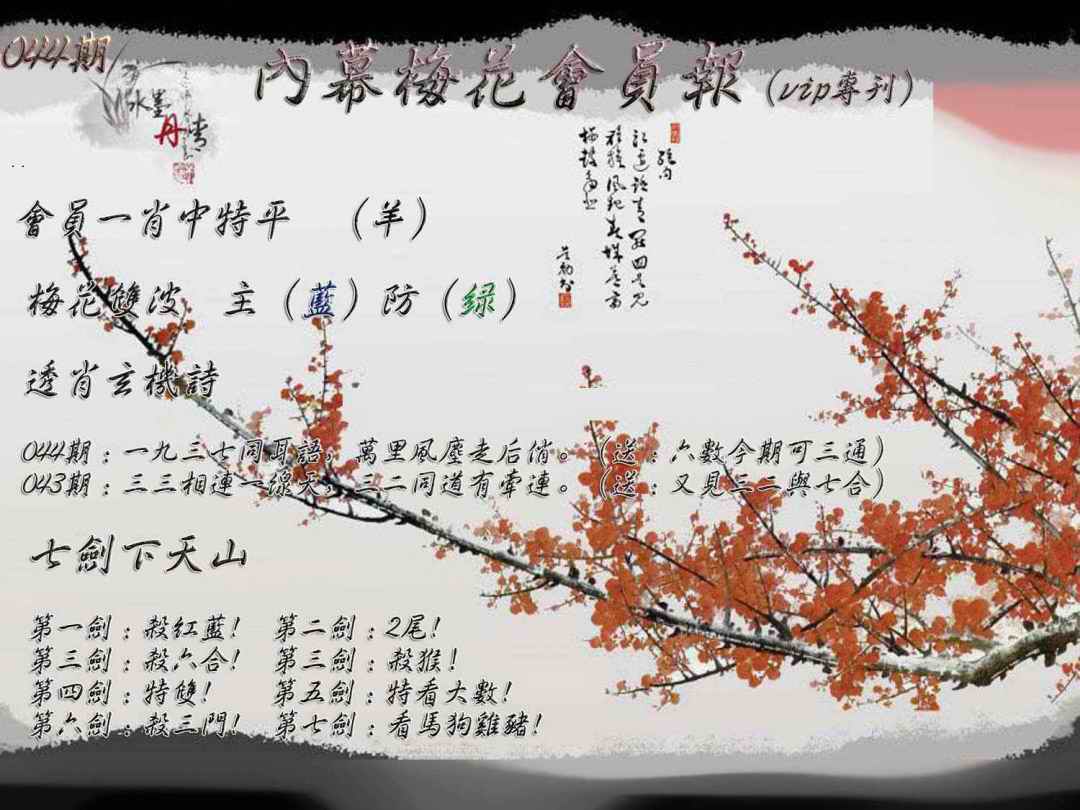 044期
內幕梅花會員報（vip專刊）
水墨
丹青
會員一肖中特平 （羊）
梅花雙波 主（藍）防（绿）
透肖玄機詩
044期：一九三七同耳語，萬里風塵走后俏。（送：六數今期可三通）
043期：三三相連一線天，三二同道有牽連。（送：又見三二與七合）
七劍下天山
第一劍：殺紅藍！ 第二劍：2尾！
第三劍：殺六合！ 第三劍：殺猴！
第四劍：特雙！ 第五劍：特看大數！
第六劍：殺三門！ 第七劍：看馬狗雞豬！